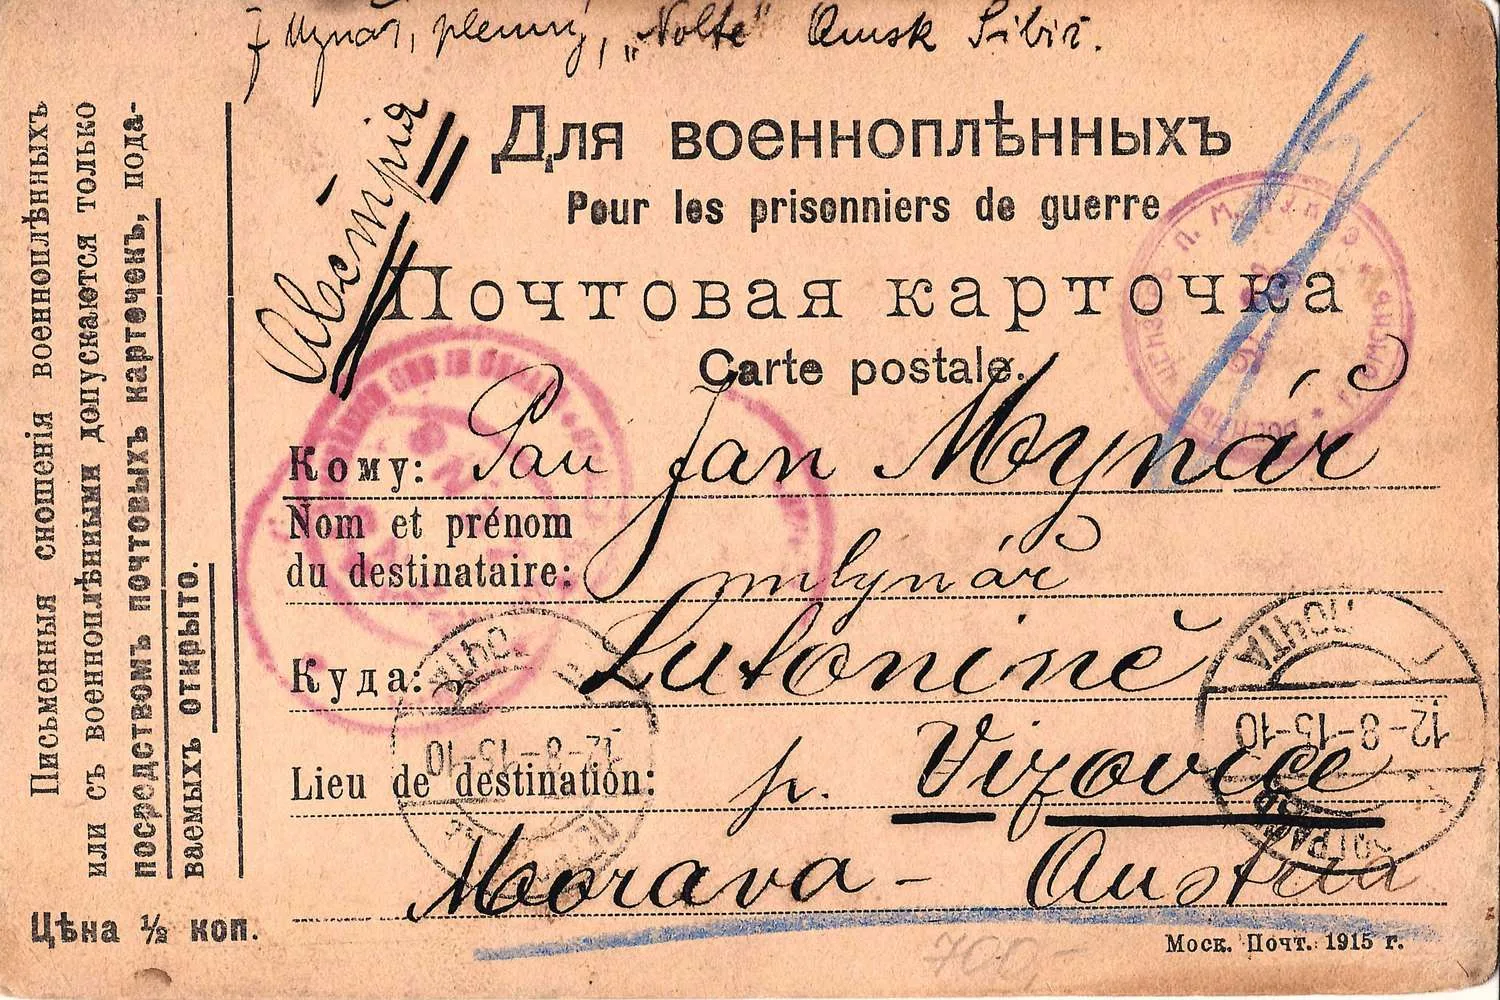 J Mynář, plenný, „Nolte" Omsk Sibiř.
Австрія
Для военноплѣнныхъ
Pour les prisonniers de guerre
Почтовая карточка
Carte postale.
Кому: Pan Jan Mynář
Nom et prénom
du destinataire: mlynář
Куда: Lutonině
Lieu de destination: p. Vizovice
Morava - Austria
Моск. Почт. 1915 г.
700,-
Письменныя сношенія военноплѣнныхъ
или съ военноплѣнными допускаются только
посредствомъ почтовыхъ карточекъ, пода-
ваемыхъ открыто.
Цѣна ½ коп.
ПОЧТА
12-8-15-10
ПОЧТА
12-8-15-10